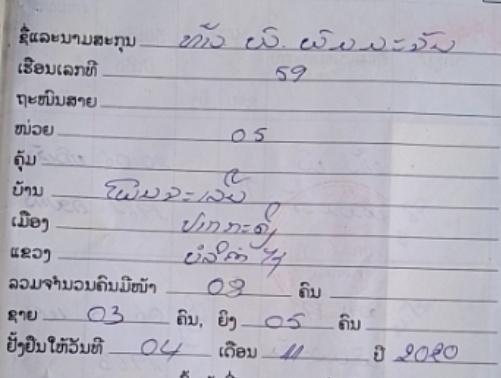 ຊື່ແລະນາມສະກຸນ ທ້າວ
ເຮືອນເລກທີ 59
ຖະໜົນສາຍ
ໜ່ວຍ 05
ຄຸ້ມ
ບ້ານ
ເມືອງ ປາກກະດິງ
ແຂວງ ບໍລິຄຳໄຊ
ລວມຈຳນວນຄົນມີໜ້າ ຄົນ
ຊາຍ 03 ຄົນ, ຍິງ 05 ຄົນ
ຢັ້ງຢືນໃຫ້ວັນທີ 04 ເດືອນ 11 ປີ 2020